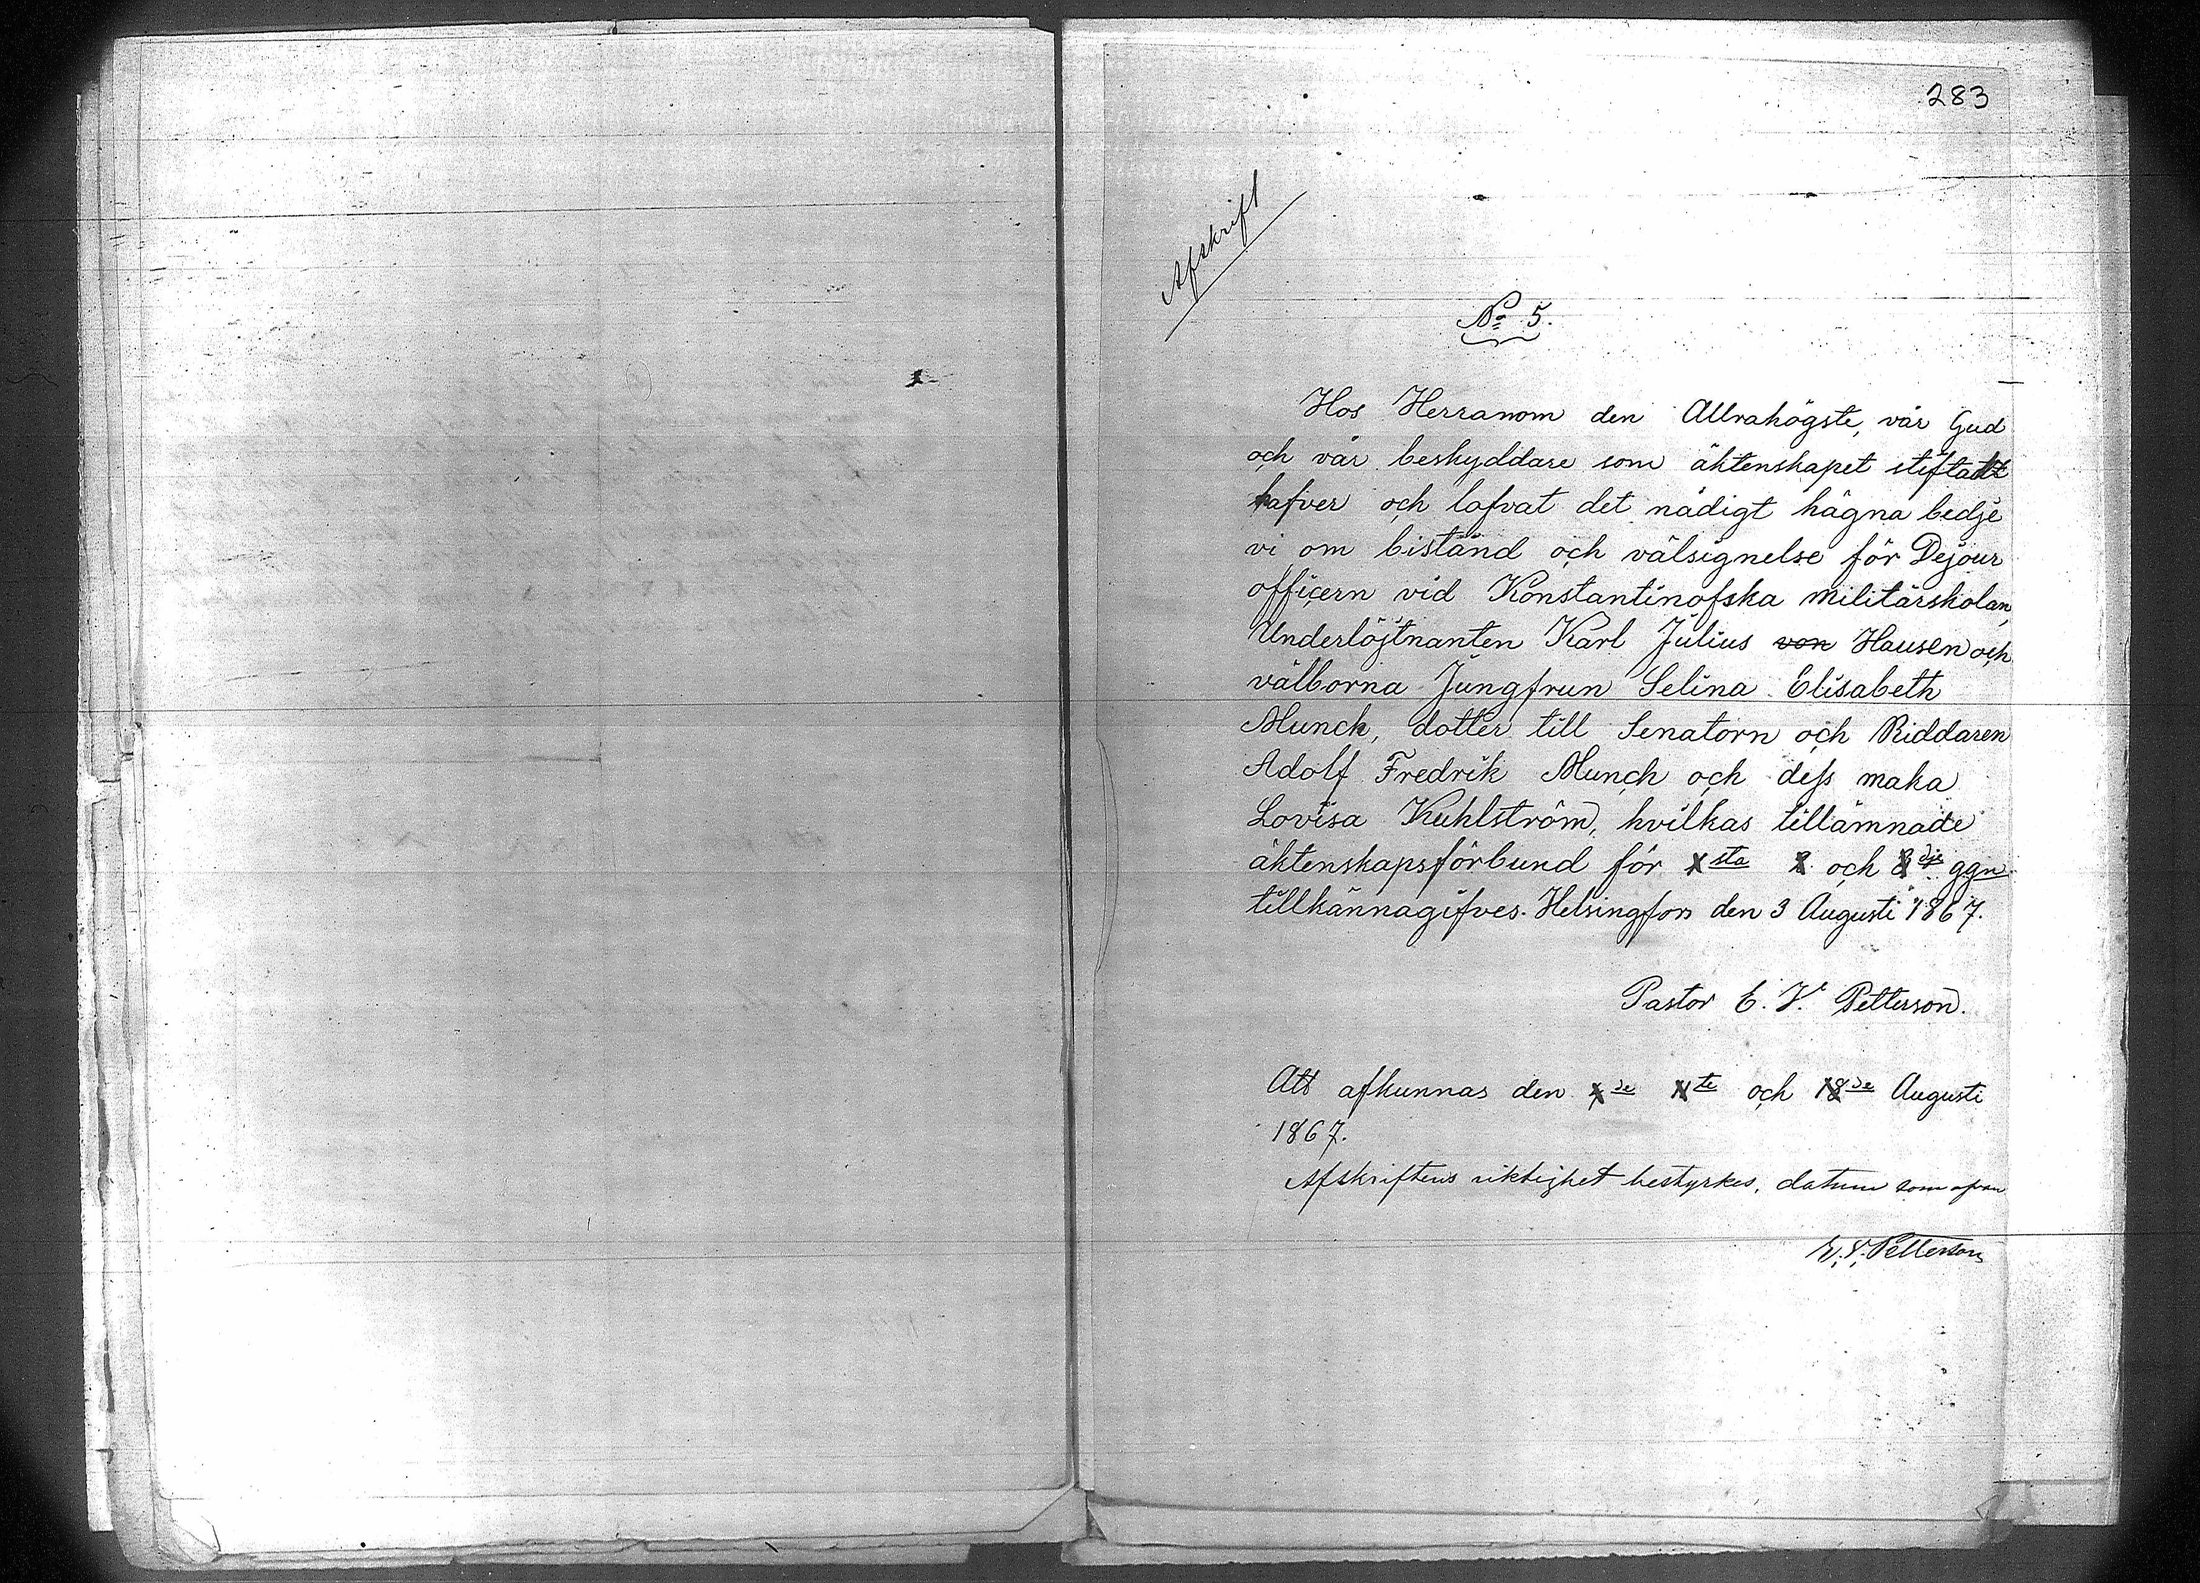 283
Afskrift
No 5.
Hos Herranom den Allrahögste, vår Gud
och vår beskyddare som äktenskapet stiftadt
hafver och lofvat det nådigt hägna bedje
vi om bistånd och välsignelse för Dejour
officern vid Konstantinofska militärskolan,
Underlöjtnanten Karl Julius von Hausen och
välborna Jungfrun Selina Elisabeth
Munck, dotter till Senatorn och Riddaren
Adolf Fredrik Munck och dess maka
Lovisa Kuhlström, hvilkas tillämnade
äktenskapsförbund för 1sta 2 och 3dje ggn
tillkännagifves. Helsingfors den 3 Augusti 1867.
Pastor E. V. Petterson.
Att afkunnas den 4de 11te och 18de Augusti
1867.
Afskriftens riktighet bestyrkes, datum som ofvan
E. V. Petterson